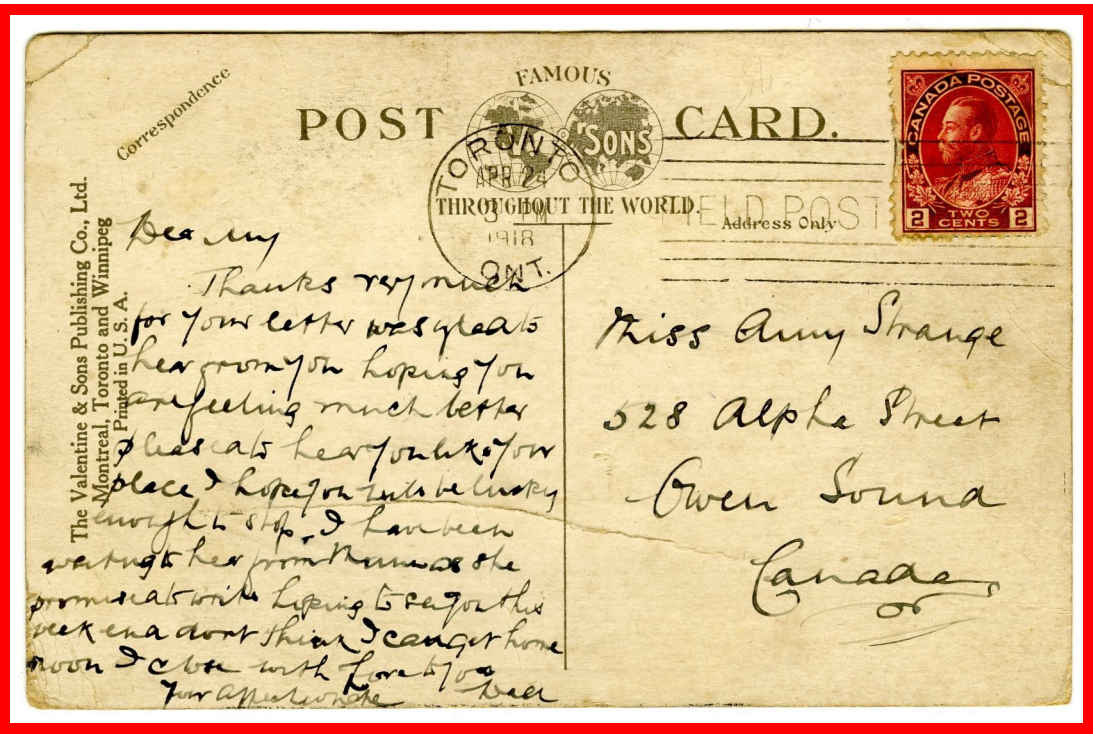 Correspondence
FAMOUS
POST CARD.
& SONS
THROUGHOUT THE WORLD.
TORONTO
APR 24
3 PM
1918
ONT.
FIELD POST
Address Only
CANADA POSTAGE
2 TWO CENTS 2
The Valentine & Sons Publishing Co., Ltd.
Montreal, Toronto and Winnipeg
Printed in U. S. A.
Dea Amy
Thanks very much
for your letter was glead to
hear from you hoping you
are feeling much better
pleased to hear you like your
place I hope you will be lucky
enough to stop. I have been
waiting to hear from Mum as she
promised to write hoping to see you this
week end dont think I can get home
soon I close with Love to you
Your Affectionate
Miss Amy Strange
528 Alpha Street
Owen Sound
Canada